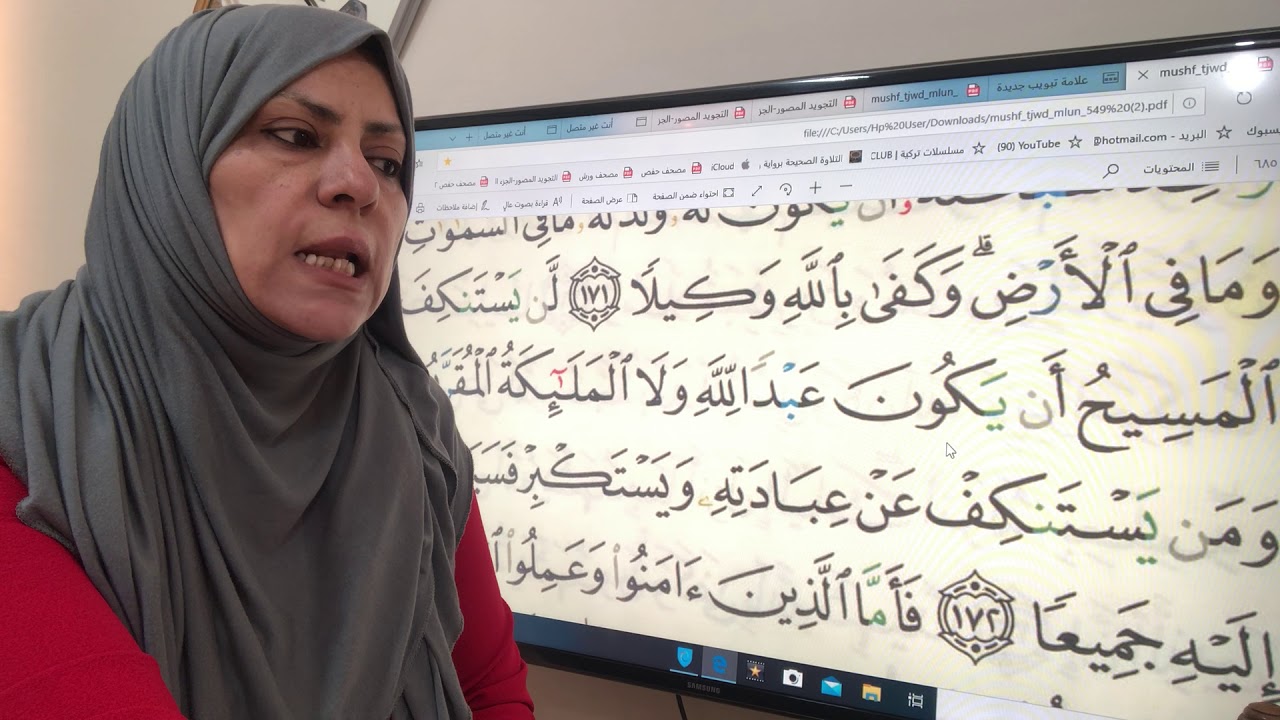 mushf_tjwd
علامة تبويب جديدة
mushf_tjwd_mlun_
التجويد المصور-الجز
التجويد المصور-الجز
أنت غير متصل
أنت غير متصل
file:///C:/Users/Hp%20User/Downloads/mushf_tjwd_mlun_549%20(2).pdf
سبوك
البريد - hotmail.com
(90) YouTube
مسلسلات تركية | CLUB
التلاوة الصحيحة برواية
iCloud
مصحف حفص
مصحف ورش
التجويد المصور-الجزء
مصحف حفص
٦٨٥
المحتويات
احتواء ضمن الصفحة
عرض الصفحة
قراءة بصوت عالٍ
إضافة ملاحظات
يَكُونَ لَهُۥ وَلَدٌ لَّهُۥ مَا فِى ٱلسَّمَٰوَٰتِ
وَمَا فِى ٱلْأَرْضِ ۗ وَكَفَىٰ بِٱللَّهِ وَكِيلًا ١٧١ لَّن يَسْتَنكِفَ
ٱلْمَسِيحُ أَن يَكُونَ عَبْدًا لِّلَّهِ وَلَا ٱلْمَلَٰٓئِكَةُ
وَمَن يَسْتَنكِفْ عَنْ عِبَادَتِهِۦ وَيَسْتَكْبِرْ
إِلَيْهِ جَمِيعًا ١٧٢ فَأَمَّا ٱلَّذِينَ ءَامَنُوا۟ وَعَمِلُوا۟
SAMSUNG